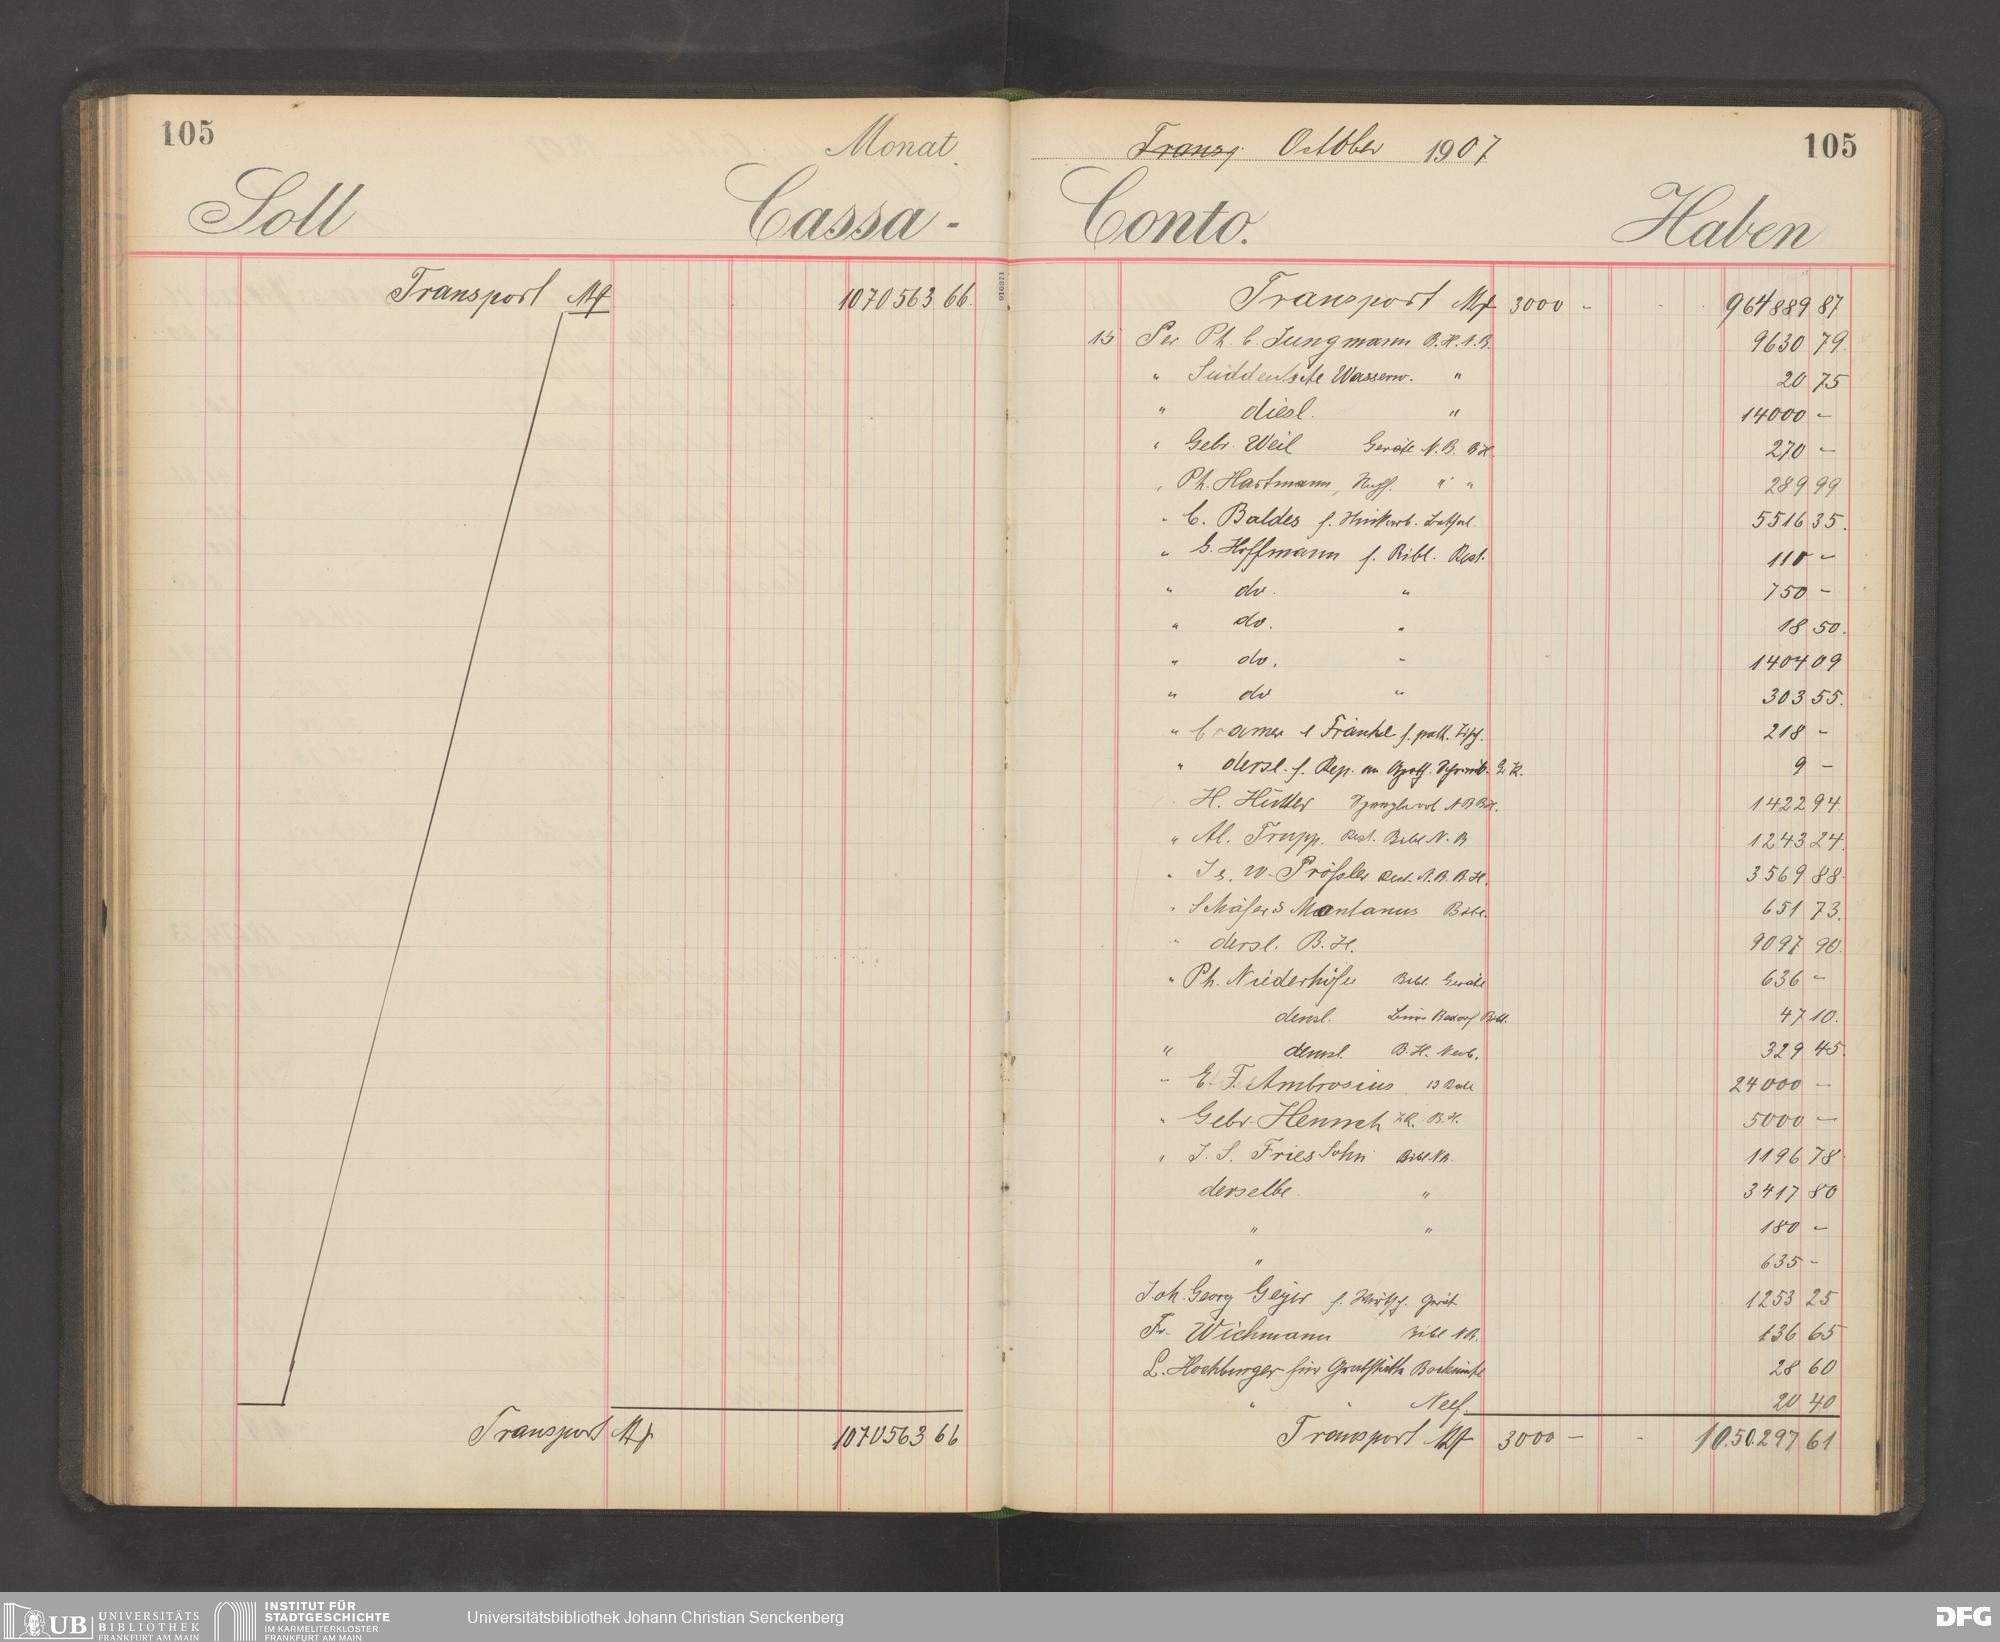 105
Monat
Soll
Cassa-
Transport M 1070563 66.
Transport M 1070563 66
910821
Transp. October 1907
105
Conto.
Haben
Transport M 3000 - - 964889 87
15 Per Ph. C. Jungmann B.H.N.B. 9630 79
" Süddeutsche Wasserw. " 20 75
" diesl. " 14000 -
" Gebr. Weil Geräte N.B. BH 270 -
" Ph. Hartmann, " " 289 99
" C. Baldes f. 5516 35.
" G. Hoffmann f. Bibl. Rest. 110 -
" do. " 750 -
" do. " 18 50.
" do. " 1404 09
" do " 303 55.
" Cramer & Fränkel f. 218 -
" dersl. f. Rep. 9 -
H. Hütter N B BH. 1422 94
" Al. Trupp. Rest. Bibl N. B 1243 24.
" W. Prößler Rest. N.B. B.H. 3569 88.
" Schäfer & Montanus Bibl. 651 73.
" dersl. B.H. 9097 90.
" Ph. Niederhöfer Bibl. Geräte 636 -
demsl. Bedarf Bibl. 47 10.
" demsl. B.H. Neub. 329 45.
" E. F. Ambrosius 24000 -
" Gebr. Hennrch B.H. 5000 -
" J. S. Fries Sohn Bibl. NB. 1196 78
derselbe " 3417 80
" " 180 -
" 635 -
Joh. Georg Geyer f. 1253 25
Fr. Wichmann Bibl NB. 136 65
L. Hochburger für 28 60
" " Neef. 20 40
Transport M 3000 - - 10.50.297 61
UB UNIVERSITÄTS
BIBLIOTHEK
FRANKFURT AM MAIN
INSTITUT FÜR
STADTGESCHICHTE
IM KARMELITERKLOSTER
FRANKFURT AM MAIN
Universitätsbibliothek Johann Christian Senckenberg
DFG